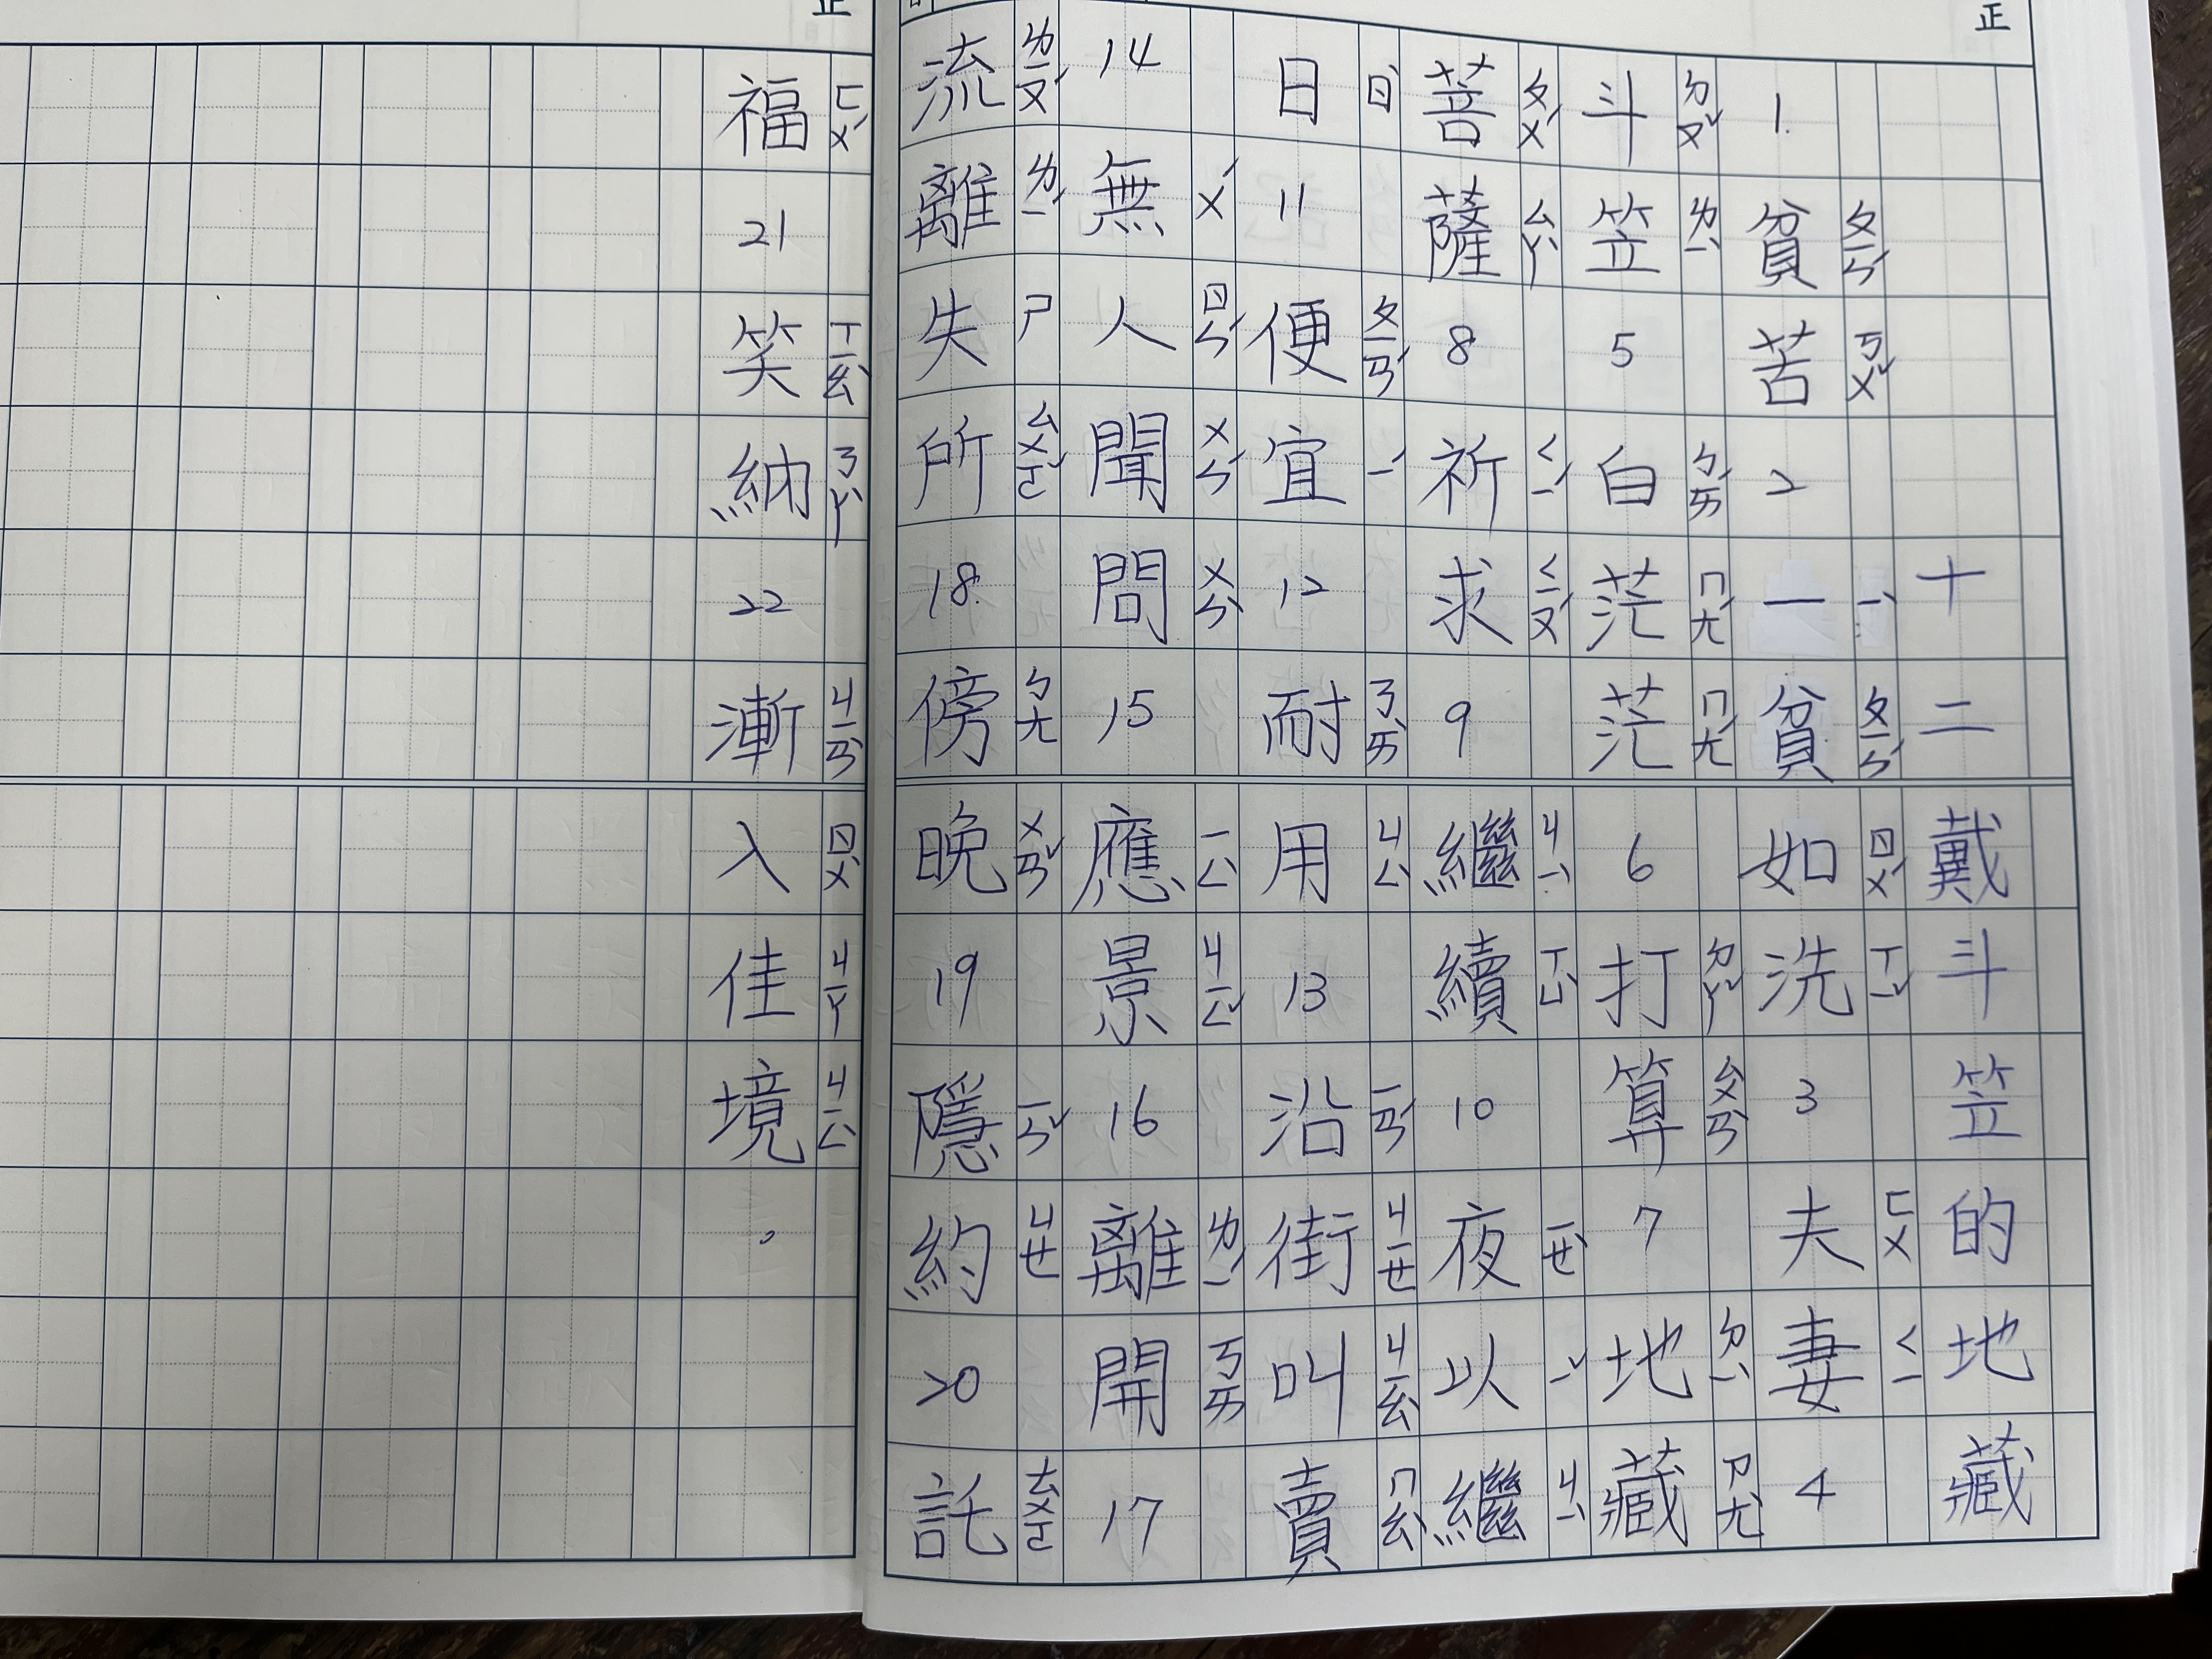 正
十二戴斗笠的地藏
1.貧ㄆㄧㄣˊ苦ㄎㄨˇ2一ㄧˋ貧ㄆㄧㄣˊ如ㄖㄨˊ洗ㄒㄧˇ3夫ㄈㄨ妻ㄑㄧ4
斗ㄉㄡˇ笠ㄌㄧˋ5白ㄅㄞˊ茫ㄇㄤˊ茫ㄇㄤˊ6打ㄉㄚˇ算ㄙㄨㄢˋ7地ㄉㄧˋ藏ㄗㄤˋ
菩ㄆㄨˊ薩ㄙㄚˋ8祈ㄑㄧˊ求ㄑㄧㄡˊ9繼ㄐㄧˋ續ㄒㄩˋ10夜ㄧㄝˋ以ㄧˇ繼ㄐㄧˋ
日ㄖˋ11便ㄆㄧㄢˊ宜ㄧˊ12耐ㄋㄞˋ用ㄩㄥˋ13沿ㄧㄢˊ街ㄐㄧㄝ叫ㄐㄧㄠˋ賣ㄇㄞˋ
14無ㄨˊ人ㄖㄣˊ聞ㄨㄣˊ問ㄨㄣˋ15應ㄧㄥˋ景ㄐㄧㄥˇ16離ㄌㄧˊ開ㄎㄞ17
流ㄌㄧㄡˊ離ㄌㄧˊ失ㄕ所ㄙㄨㄛˇ18.傍ㄅㄤ晚ㄨㄢˇ19隱ㄧㄣˇ約ㄩㄝ20託ㄊㄨㄛ
福ㄈㄨˊ21笑ㄒㄧㄠˋ納ㄋㄚˋ22漸ㄐㄧㄢˋ入ㄖㄨˋ佳ㄐㄧㄚ境ㄐㄧㄥˋ。